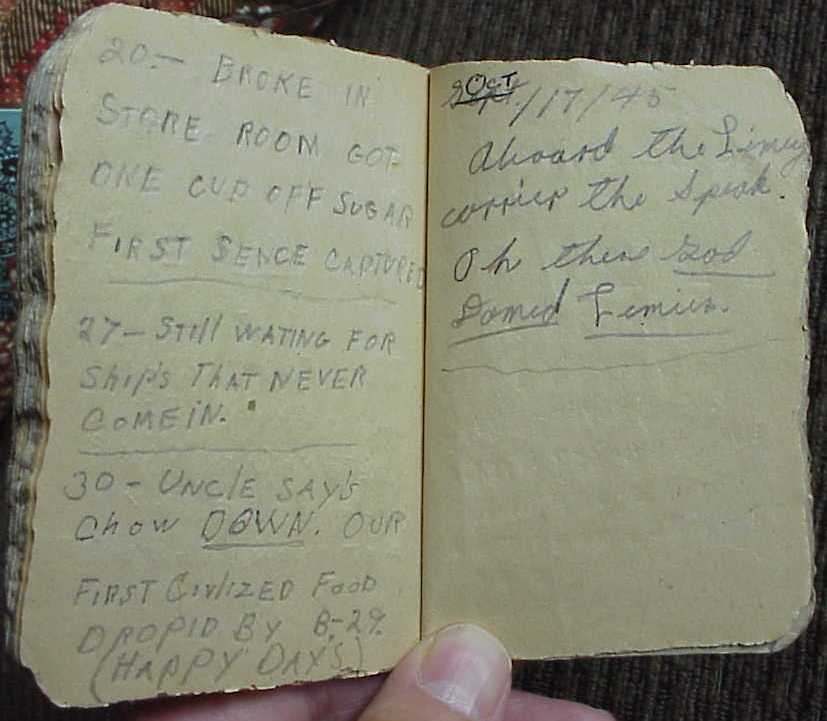 20.- BROKE IN
STORE ROOM GOT
ONE CUP OFF SUGAR
FIRST SENCE CAPTURED
27- Still WATING FOR
Ship's THAT NEVER
COME IN.
30- UNCLE SAY'S
Chow DOWN. OUR
FIRST CivlIZED FooD
DROPID BY B-29.
(HAPPY DAYS)
Sept OCT/17/45
Aboard the Limey
carrier the Speak.
Oh these God
Damed Limies.